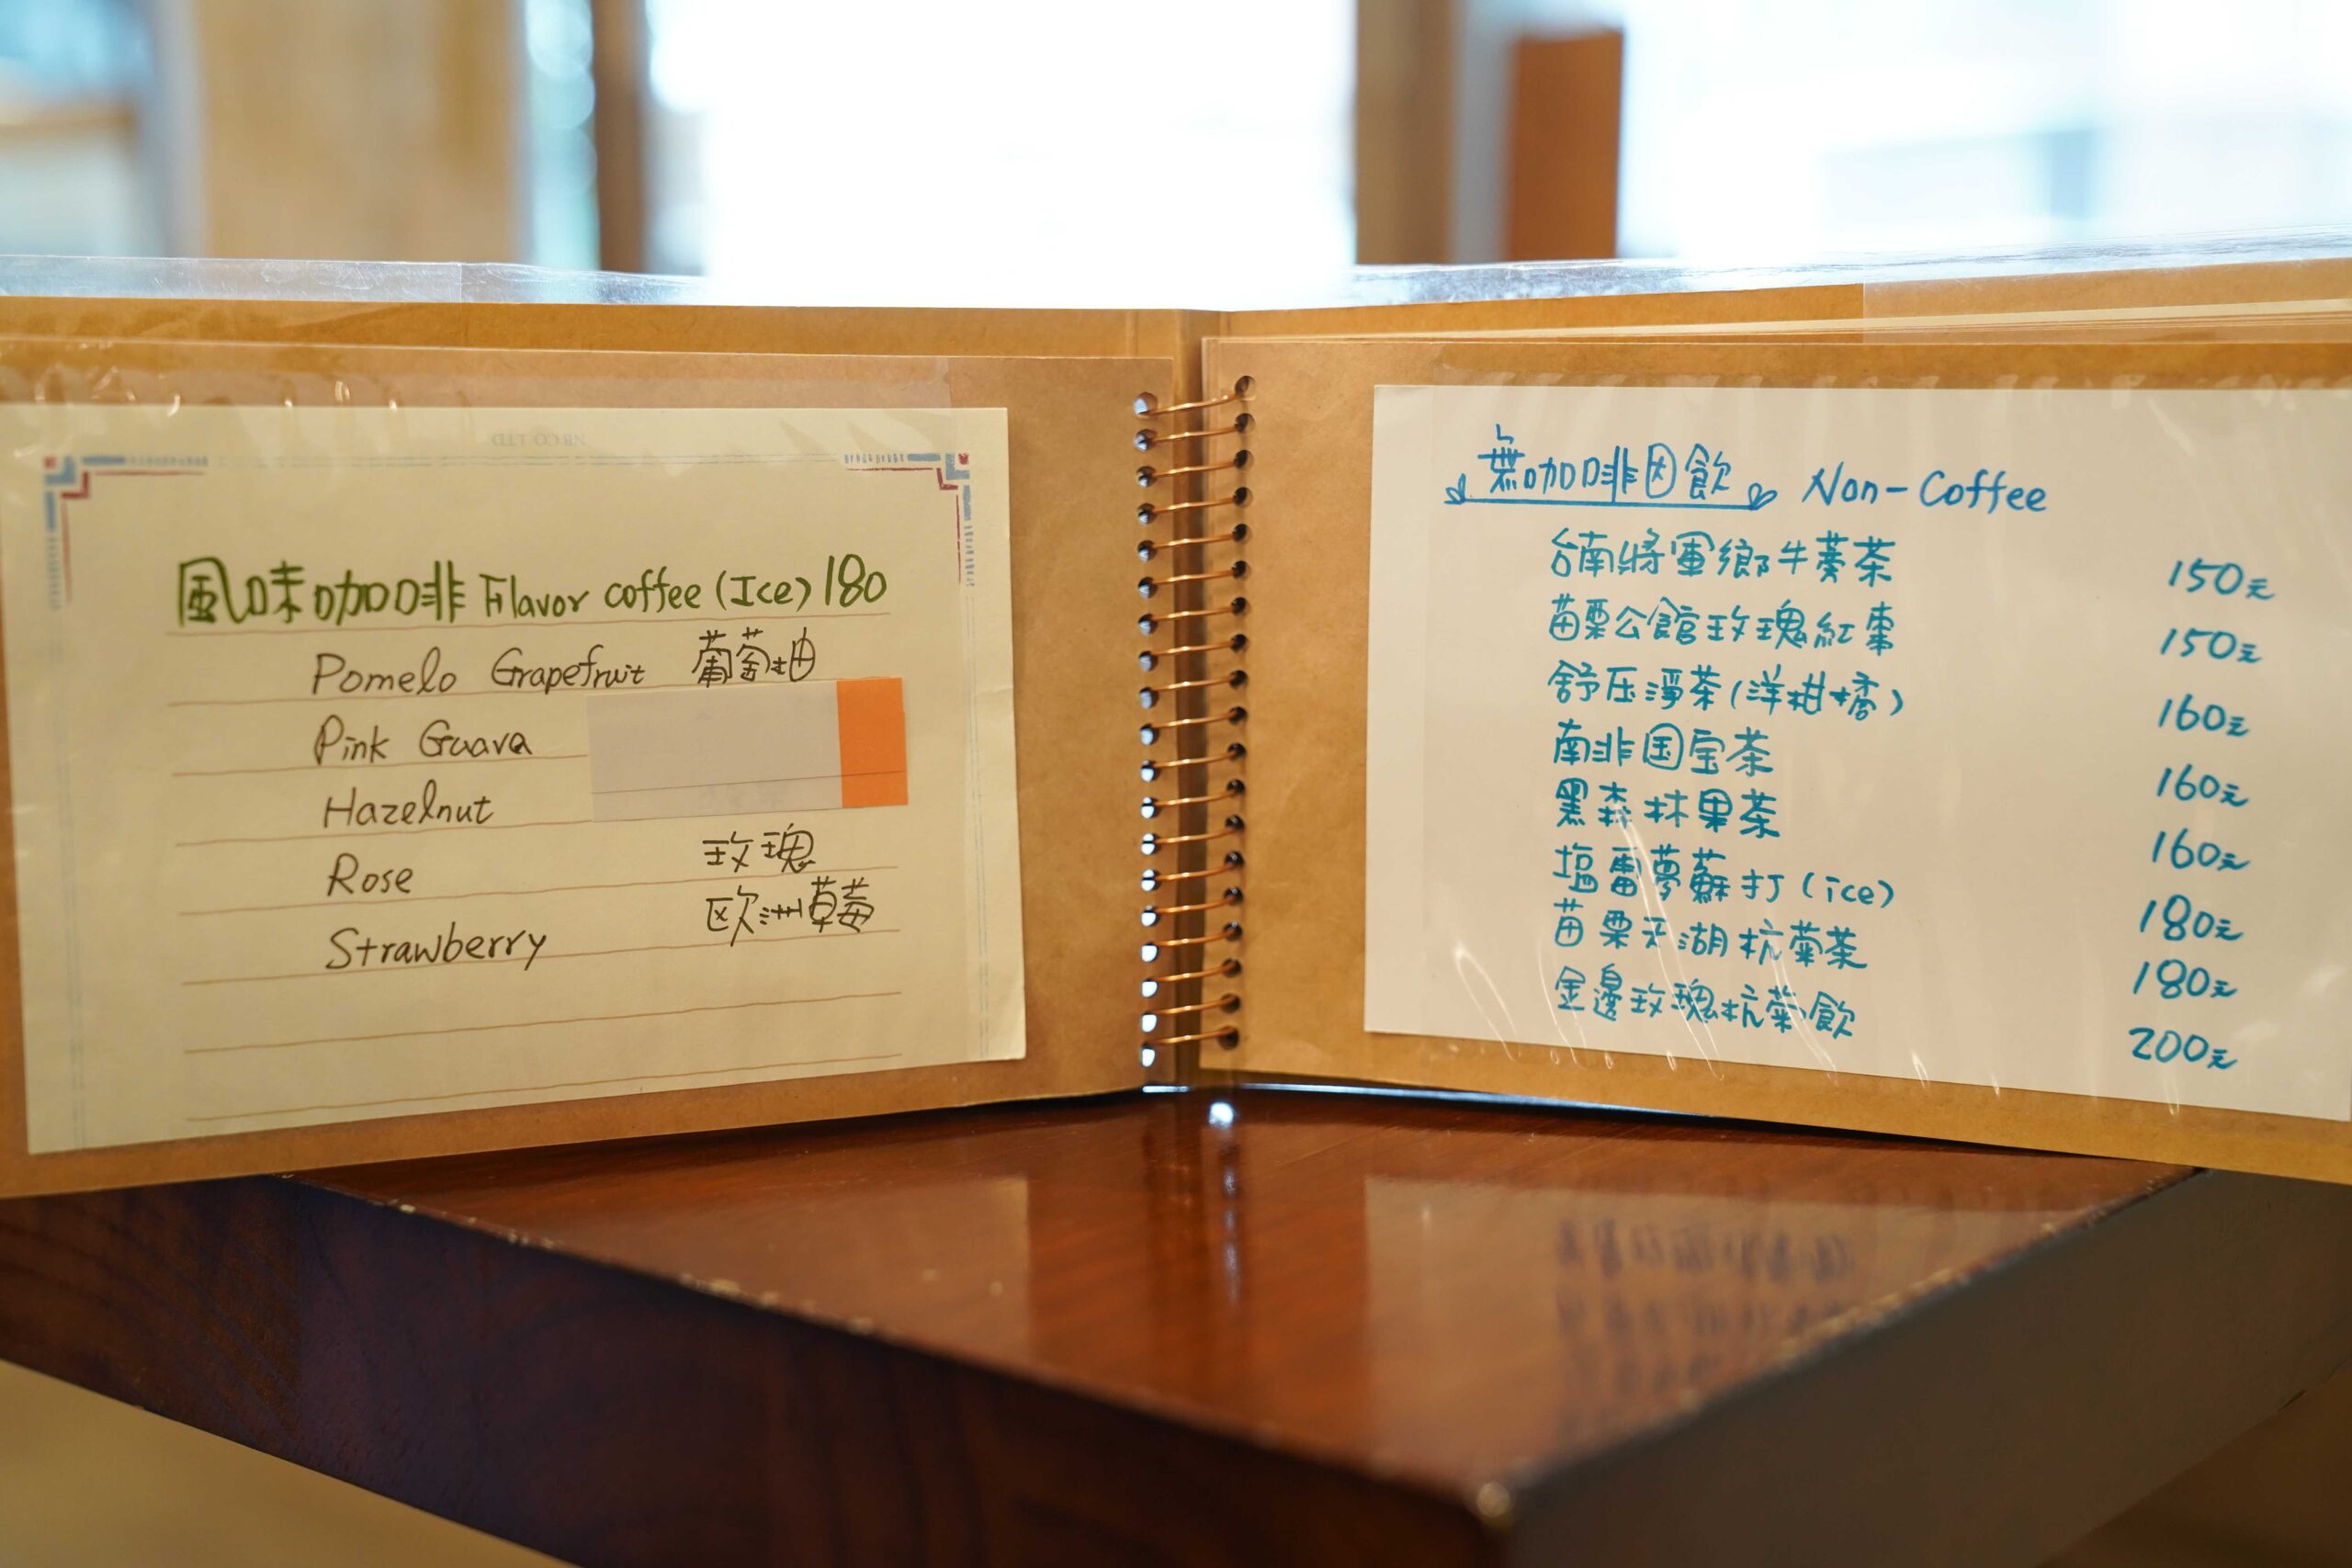 風味咖啡 Flavor coffee (Ice) 180
Pomelo Grapefruit 葡萄柚
Pink Guava
Hazelnut
Rose 玫瑰
Strawberry 欧洲草莓
無咖啡因飲 Non-Coffee
台南將軍鄉牛蒡茶 150元
苗栗公館玫瑰紅棗 150元
舒压淨茶(洋柑橘) 160元
南非国宝茶 160元
黑森林果茶 160元
塩雷夢蘇打(ice) 180元
苗栗天湖杭菊茶 180元
金邊玫瑰杭菊飲 200元